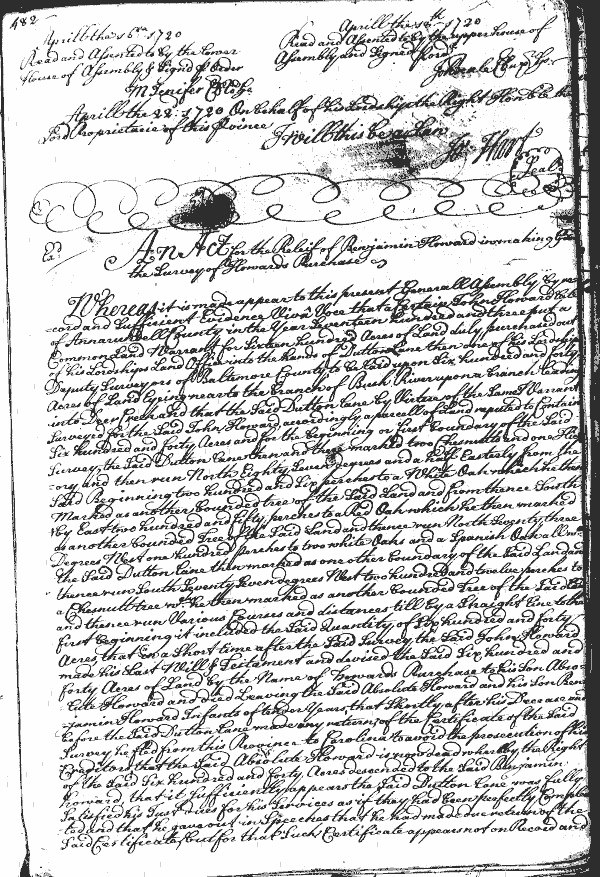 482
Aprill the 16th 1720
Read and Assented to by the Lower
House of Assembly & Signd p Order
M Jenifer Cl
Aprill the 16th 1720
Read and Assented to by the upper house of
Assembly and Signed p Ordr
Jo Beale
Aprill the 22: 1720 On behalf of his Lordship the Right Honble the
Lord Proprietarie of this Province I will this be a Law
Jo: Hart
Seal
An Act for the Releif of Benjamin Howard in making Good
the Survey of Howards Purchase
Whereas it is made appear to this present Generall Assembly by re
cord and Sufficient Evidence Viva Voce that a Certain John Howard
of Annarundell County in the Year Seventeen hundred and three put a
Common Land Warrant for Sixteen hundred Acres of Land duly purchased out
of his Lordships Land Office into the hands of Dutton Lane then one of his Lordships
Deputy Surveyors of Baltemore County to be Laid upon Six hundred and forty
Acres of Land lying near to the branch of Bush River upon a branch leading
into Deer Creek and that the Said Dutton Lane by Virtue of the Same Warrant
Surveyed for the Said John Howard accordingly a parcell of Land reputed to Contain
Six hundred and forty Acres and for the beginning or first boundary of the Said
Survey, the Said Dutton Lane then and there marked two Chesnutts and one Hic
cory and then run North Eighty Seven degrees and a half Easterly from the
Said Beginning two hundred and Six perches to a White Oak which he then
Marked as another bounded tree of the Said Land and from thence South
by East two hundred and forty perches to a Red Oak which he then marked
as another bounded Tree of the Said Land and thence run North Seventy three
Degrees West one hundred perches to two white Oaks and a Spanish Oak all wch
the Said Dutton Lane then marked as one other boundary of the Said Land and
thence run South Seventy Seven degrees West two hundred and twelve perches to
a Chesnutt tree wch he then marked as another bounded Tree of the Said
and thence run Various Courses and distances till by a Straight line to the
first beginning it included the Said Quantity of Six hundred and forty
Acres, that in a Short time after the Said Survey the Said John Howard
made his Last Will & Testament and devised the Said Six hundred and
forty Acres of Land by the Name of Howards Purchase to his Son Abso
lute Howard and died Leaving the Said Absolute Howard and his Son Ben
jamin Howard Infants of tender Years, that Shortly after his Decease and
before the Said Dutton Lane made any return of the Certificate of the Said
Survey he fled from this Province to Carolina to avoid the prosecution of his
Creditors that the Said Absolute Howard is now dead whereby the Right
of the Said Six hundred and forty Acres descended to the Said Benjamin
Howard, that it Sufficiently appears the Said Dutton Lane was fully
Satisfied his Just dues for his Services as if they had been perfectly Comple
ted and that he gave out in Speeches that he had made one return of the
Said Certificate but for that Such Certificate appears not on Record and